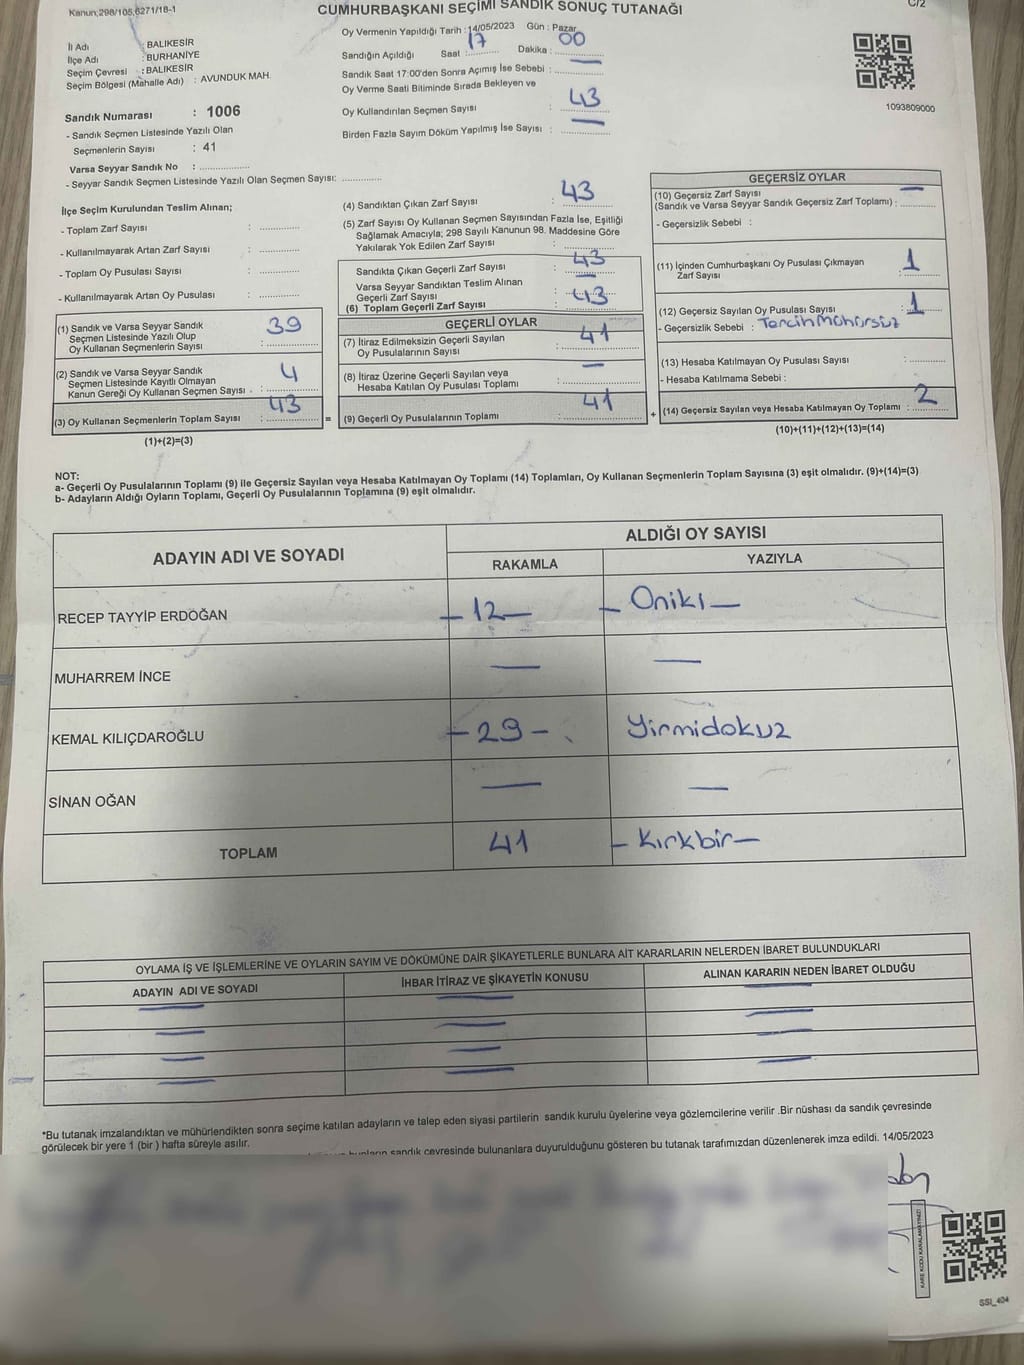 Kanun;298/105,6271/18-1
C/2
CUMHURBAŞKANI SEÇİMİ SANDIK SONUÇ TUTANAĞI
İl Adı : BALIKESİR
İlçe Adı : BURHANİYE
Seçim Çevresi : BALIKESİR
Seçim Bölgesi (Mahalle Adı) : AVUNDUK MAH.
Sandık Numarası : 1006
- Sandık Seçmen Listesinde Yazılı Olan
Seçmenlerin Sayısı : 41
Varsa Seyyar Sandık No : ..............
- Seyyar Sandık Seçmen Listesinde Yazılı Olan Seçmen Sayısı: ..............
Oy Vermenin Yapıldığı Tarih : 14/05/2023 Gün : Pazar
Sandığın Açıldığı Saat : 17 Dakika : 00
Sandık Saat 17:00'den Sonra Açımış İse Sebebi : —
Oy Verme Saati Bitiminde Sırada Bekleyen ve
Oy Kullandırılan Seçmen Sayısı : 43
Birden Fazla Sayım Döküm Yapılmış İse Sayısı : —
1093809000
İlçe Seçim Kurulundan Teslim Alınan;
- Toplam Zarf Sayısı : ..............
- Kullanılmayarak Artan Zarf Sayısı : ..............
- Toplam Oy Pusulası Sayısı : ..............
- Kullanılmayarak Artan Oy Pusulası : ..............
(1) Sandık ve Varsa Seyyar Sandık
Seçmen Listesinde Yazılı Olup
Oy Kullanan Seçmenlerin Sayısı : 39
(2) Sandık ve Varsa Seyyar Sandık
Seçmen Listesinde Kayıtlı Olmayan
Kanun Gereği Oy Kullanan Seçmen Sayısı . : 4
(3) Oy Kullanan Seçmenlerin Toplam Sayısı : 43
(1)+(2)=(3)
(4) Sandıktan Çıkan Zarf Sayısı : 43
(5) Zarf Sayısı Oy Kullanan Seçmen Sayısından Fazla İse, Eşitliği
Sağlamak Amacıyla; 298 Sayılı Kanunun 98. Maddesine Göre
Yakılarak Yok Edilen Zarf Sayısı : ..............
Sandıkta Çıkan Geçerli Zarf Sayısı : 43
Varsa Seyyar Sandıktan Teslim Alınan
Geçerli Zarf Sayısı : —
(6) Toplam Geçerli Zarf Sayısı : 43
GEÇERLİ OYLAR
(7) İtiraz Edilmeksizin Geçerli Sayılan
Oy Pusulalarının Sayısı : 41
(8) İtiraz Üzerine Geçerli Sayılan veya
Hesaba Katılan Oy Pusulası Toplamı : —
= (9) Geçerli Oy Pusulalarının Toplamı : 41
GEÇERSİZ OYLAR
(10) Geçersiz Zarf Sayısı
(Sandık ve Varsa Seyyar Sandık Geçersiz Zarf Toplamı) : —
- Geçersizlik Sebebi :
(11) İçinden Cumhurbaşkanı Oy Pusulası Çıkmayan
Zarf Sayısı : 1
(12) Geçersiz Sayılan Oy Pusulası Sayısı : 1
- Geçersizlik Sebebi : Tercih Mühürsüz
(13) Hesaba Katılmayan Oy Pusulası Sayısı : ..............
- Hesaba Katılmama Sebebi :
+ (14) Geçersiz Sayılan veya Hesaba Katılmayan Oy Toplamı : 2
(10)+(11)+(12)+(13)=(14)
NOT:
a- Geçerli Oy Pusulalarının Toplamı (9) ile Geçersiz Sayılan veya Hesaba Katılmayan Oy Toplamı (14) Toplamları, Oy Kullanan Seçmenlerin Toplam Sayısına (3) eşit olmalıdır. (9)+(14)=(3)
b- Adayların Aldığı Oyların Toplamı, Geçerli Oy Pusulalarının Toplamına (9) eşit olmalıdır.
ADAYIN ADI VE SOYADI
ALDIĞI OY SAYISI
RAKAMLA YAZIYLA
RECEP TAYYİP ERDOĞAN – 12 – – Oniki –
MUHARREM İNCE — —
KEMAL KILIÇDAROĞLU – 29 – Yirmidokuz
SİNAN OĞAN — —
TOPLAM 41 – Kırkbir –
OYLAMA İŞ VE İŞLEMLERİNE VE OYLARIN SAYIM VE DÖKÜMÜNE DAİR ŞİKAYETLERLE BUNLARA AİT KARARLARIN NELERDEN İBARET BULUNDUKLARI
ADAYIN ADI VE SOYADI İHBAR İTİRAZ VE ŞİKAYETİN KONUSU ALINAN KARARIN NEDEN İBARET OLDUĞU
*Bu tutanak imzalandıktan ve mühürlendikten sonra seçime katılan adayların ve talep eden siyasi partilerin sandık kurulu üyelerine veya gözlemcilerine verilir .Bir nüshası da sandık çevresinde
görülecek bir yere 1 (bir ) hafta süreyle asılır.
sandık çevresinde bulunanlara duyurulduğunu gösteren bu tutanak tarafımızdan düzenlenerek imza edildi. 14/05/2023
KARE KODU KARALAMAYINIZ!
SSI_404